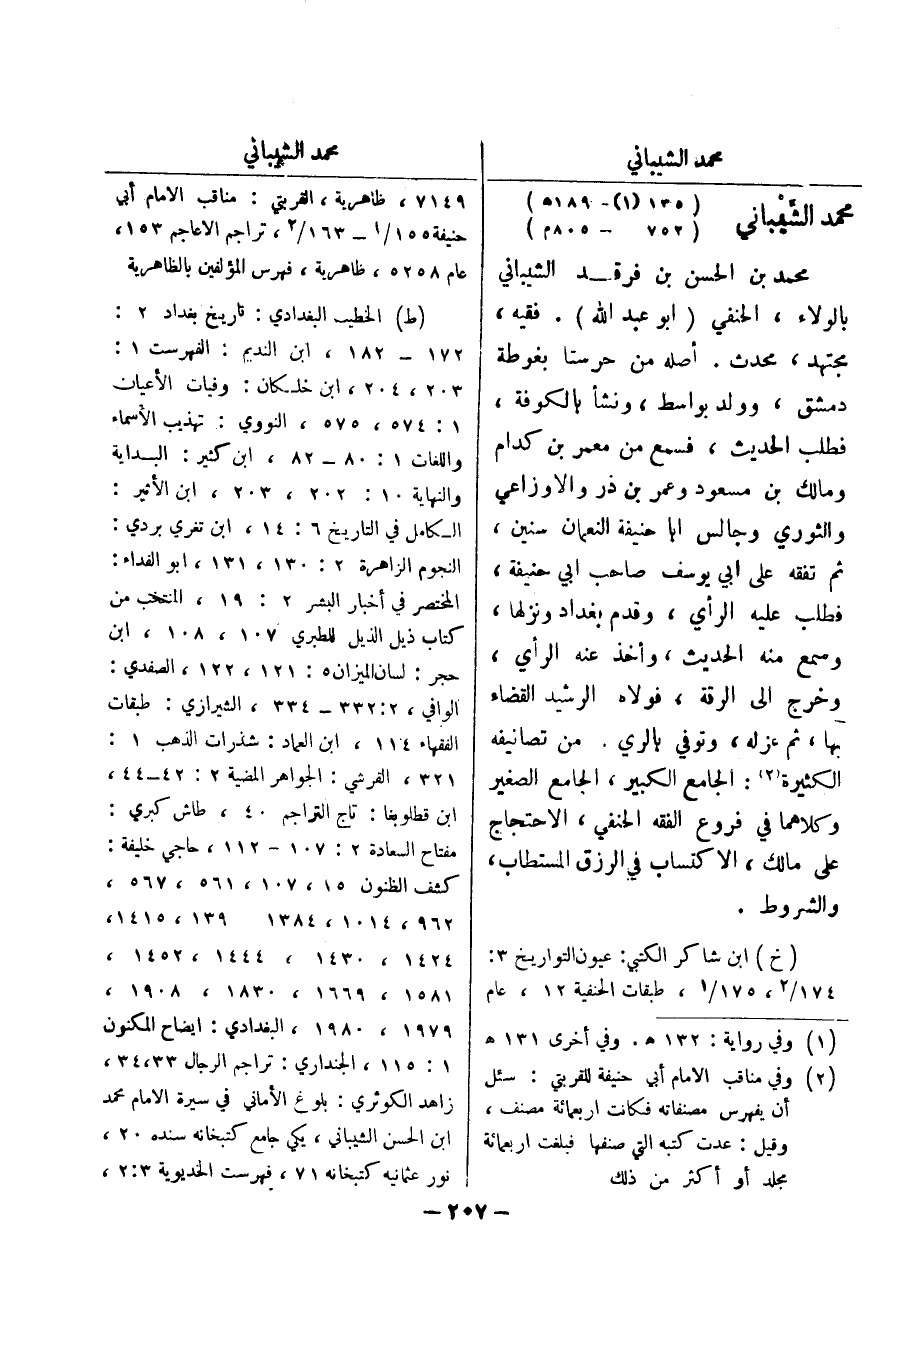 محمد الشيباني
محمد الشَّيْباني
( ١٣٥ (١)- ١٨٩ﻫ )
( ٧٥٢ - ٨٠٥م )
محمد بن الحسن بن فرقد الشيباني
بالولاء ، الحنفي ( ابو عبد الله ) . فقيه ،
مجتهد ، محدث . أصله من حرستا بغوطة
دمشق ، وولد بواسط ، ونشأ بالكوفة ،
فطلب الحديث ، فسمع من معمر بن كدام
ومالك بن مسعود وعمر بن ذر والاوزاعي
والثوري وجالس ابا حنيفة النعمان سنين ،
ثم تفقه على ابي يوسف صاحب ابي حنيفة ،
فطلب عليه الرأي ، وقدم بغداد ونزلها ،
وسمع منه الحديث ، وأخذ عنه الرأي ،
وخرج الى الرقة ، فولاه الرشيد القضاء
بها ، ثم عزله ، وتوفي بالري . من تصانيفه
الكثيرة(٢) : الجامع الكبير ، الجامع الصغير
وكلاهما في فروع الفقه الحنفي ، الاحتجاج
على مالك ، الاكتساب في الرزق المستطاب ،
والشروط .
(خ) ابن شاكر الكتبي: عيون التواريخ ٣:
٢/١٧٤ ، ١/١٧٥ ، طبقات الحنفية ١٢ ، عام
(١) وفي رواية : ١٣٢ ﻫ . وفي أخرى ١٣١ ﻫ
(٢) وفي مناقب الامام أبي حنيفة للقربتي : سئل
أن يفهرس مصنفاته فكانت اربعمائة مصنف ،
وقيل : عدت كتبه التي صنفها فبلغت اربعمائة
مجلد أو أكثر من ذلك
محمد الشيباني
٧١٤٩ ، ظاهرية ، القربتي : مناقب الامام أبي
حنيفة ١/١٥٥ ــ ٢/١٦٣ ، تراجم الاعاجم ١٥٣ ،
عام ٥٢٥٨ ، ظاهرية ، فهرس المؤلفين بالظاهرية
(ط) الخطيب البغدادي : تاريخ بغداد ٢ :
١٧٢ – ١٨٢ ، ابن النديم : الفهرست ١ :
٢٠٣ ، ٢٠٤ ، ابن خلكان : وفيات الأعيان
١ : ٥٧٤ ، ٥٧٥ ، النووي : تهذيب الأسماء
واللغات ١ : ٨٠ – ٨٢ ، ابن كثير : البداية
والنهاية ١٠ : ٢٠٢ ، ٢٠٣ ، ابن الأثير :
الكامل في التاريخ ٦ : ١٤ ، ابن تغري بردي :
النجوم الزاهرة ٢ : ١٣٠ ، ١٣١ ، ابو الفداء :
المختصر في أخبار البشر ٢ : ١٩ ، المنتخب من
كتاب ذيل الذيل للطبري ١٠٧ ، ١٠٨ ، ابن
حجر : لسان الميزان ٥ : ١٢١ ، ١٢٢ ، الصفدي :
الوافي ، ٢ : ٣٣٢ – ٣٣٤ ، الشيرازي : طبقات
الفقهاء ١١٤ ، ابن العماد : شذرات الذهب ١ :
٣٢١ ، القرشي : الجواهر المضية ٢ : ٤٢–٤٤ ،
ابن قطلوبغا : تاج التراجم ٤٠ ، طاش كبري :
مفتاح السعادة ٢ : ١٠٧ – ١١٢ ، حاجي خليفة :
كشف الظنون ١٥ ، ١٠٧ ، ٥٦١ ، ٥٦٧ ،
٩٦٢ ، ١٠١٤ ، ١٣٨٤ ١٣٩ ، ١٤١٥ ،
١٤٢٤ ، ١٤٣٠ ، ١٤٤٤ ، ١٤٥٢ ،
١٥٨١ ، ١٦٦٩ ، ١٨٣٠ ، ١٩٠٨ ،
١٩٧٩ ، ١٩٨٠ ، البغدادي : ايضاح المكنون
١ : ١١٥ ، الجنداري : تراجم الرجال ٣٣ ، ٣٤ ،
زاهد الكوثري : بلوغ الأماني في سيرة الامام محمد
ابن الحسن الشيباني ، يكي جامع كتبخانه سنده ٢٠ ،
نور عثمانيه كتبخانه ٧١ ، فهرست الخديوية ٢:٣ ،
– ٢٠٧ –